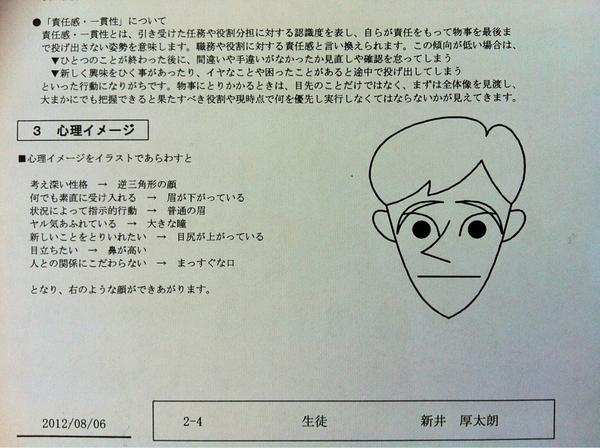 ●「責任感・一貫性」について
責任感・一貫性とは、引き受けた任務や役割分担に対する認識度を表し、自らが責任をもって物事を最後ま
で投げ出さない姿勢を意味します。職務や役割に対する責任感と言い換えられます。この傾向が低い場合は、
▼ひとつのことが終わった後に、間違いや手違いがなかったか見直しや確認を怠ってしまう
▼新しく興味をひく事があったり、イヤなことや困ったことがあると途中で投げ出してしまう
といった行動になりがちです。物事にとりかかるときは、目先のことだけではなく、まずは全体像を見渡し、
大まかにでも把握できると果たすべき役割や現時点で何を優先し実行しなくてはならないかが見えてきます。
3 心理イメージ
■心理イメージをイラストであらわすと
考え深い性格 → 逆三角形の顔
何でも素直に受け入れる → 眉が下がっている
状況によって指示的行動 → 普通の眉
ヤル気あふれている → 大きな瞳
新しいことをとりいれたい → 目尻が上がっている
目立ちたい → 鼻が高い
人との関係にこだわらない → まっすぐな口
となり、右のような顔ができあがります。
2012/08/06 2-4 生徒 新井 厚太朗